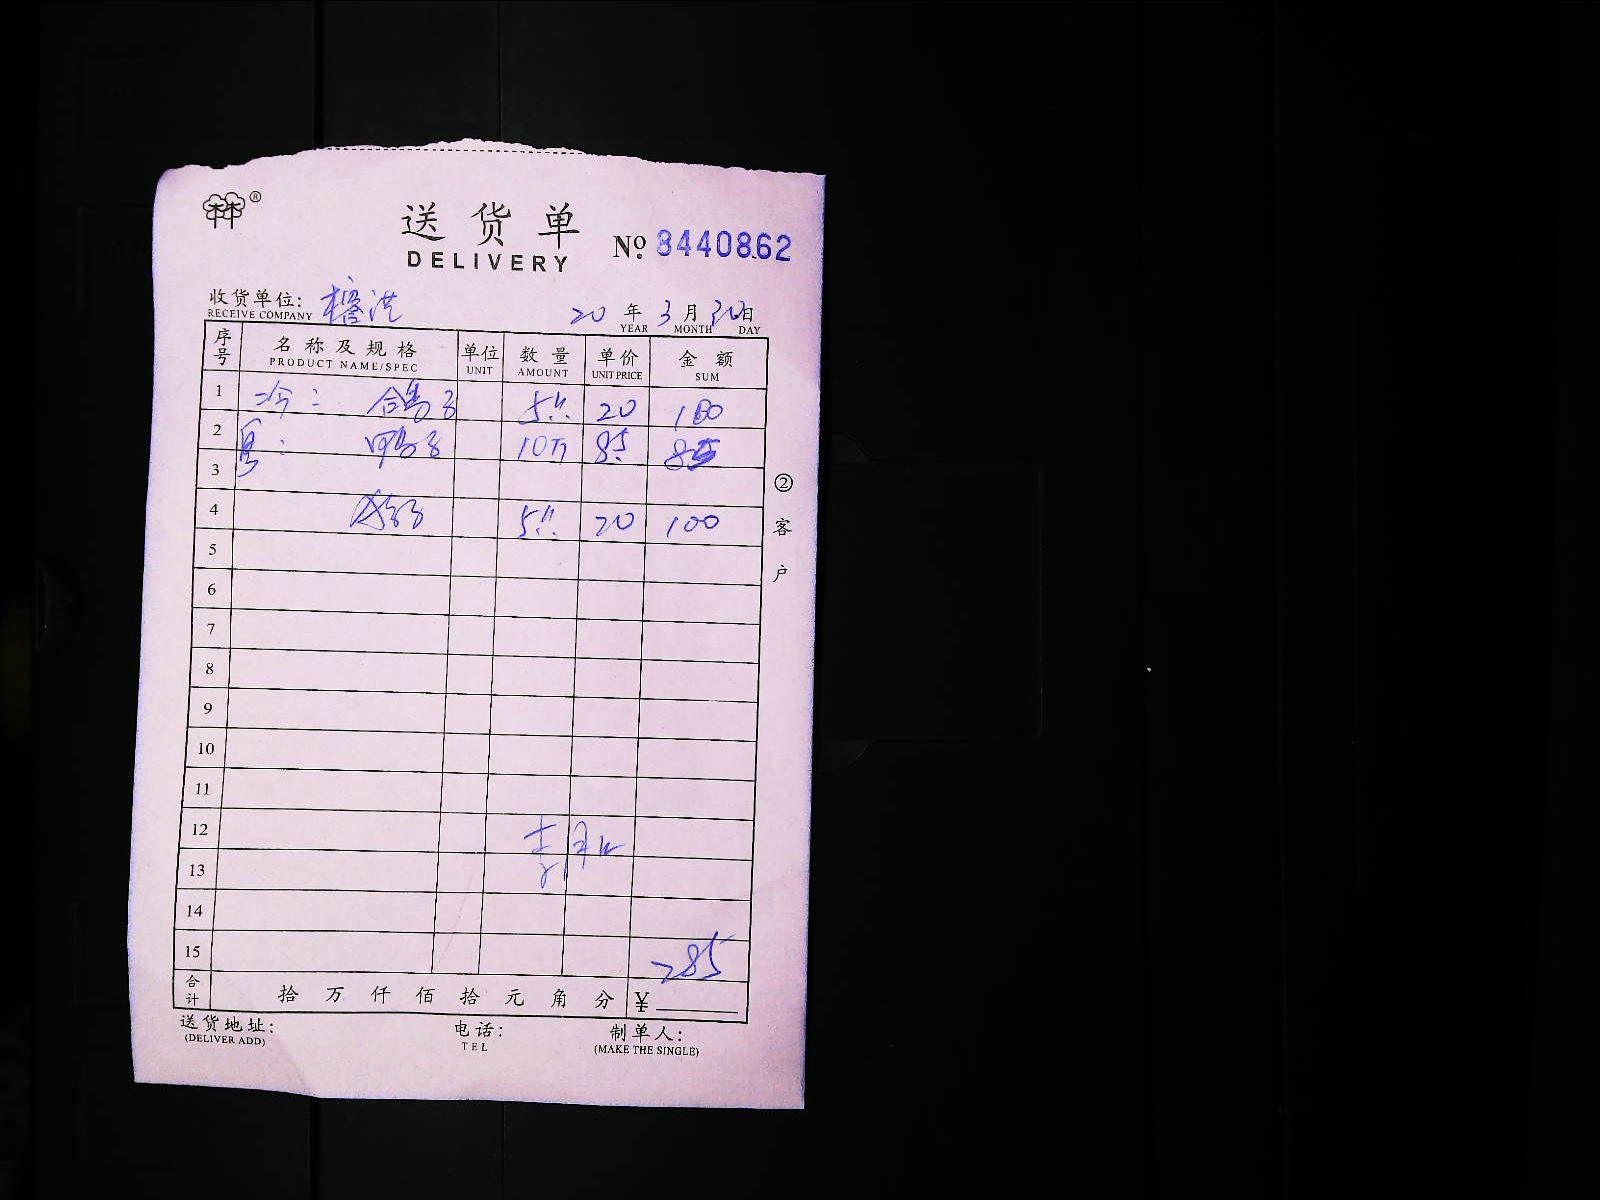 ®
送货单
DELIVERY
№ 8440862
收货单位:
RECEIVE COMPANY
20 年 3 月 30 日
YEAR MONTH DAY
序号 名称及规格 单位 数量 单价 金额
PRODUCT NAME/SPEC UNIT AMOUNT UNIT PRICE SUM
1 冷: 20 100
2 10 85 85
3
4 20 100
5
6
7
8
9
10
11
12
13
14
15 285
合计 拾 万 仟 佰 拾 元 角 分 ¥
② 客户
送货地址: 电话: 制单人:
(DELIVER ADD) TEL (MAKE THE SINGLE)